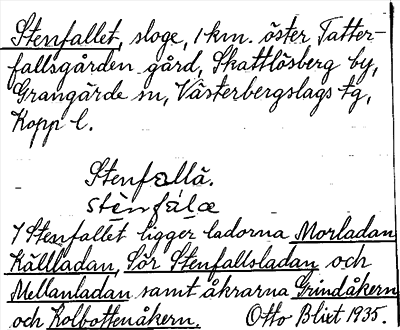 Stenfallet, sloge, 1 km. öster Tatter-
fallsgården gård, Skattlösberg by,
Grangärde sn, Västerbergslags tg,
Kopp l.
Stenfallä.
stenfälæ
I Stenfallet ligger ladorna Morladan
Källladan, Sör Stenfallsladan och
Mellanladan samt åkrarna Grindåkern
och Kolbottenåkern. Otto Blixt 1935.